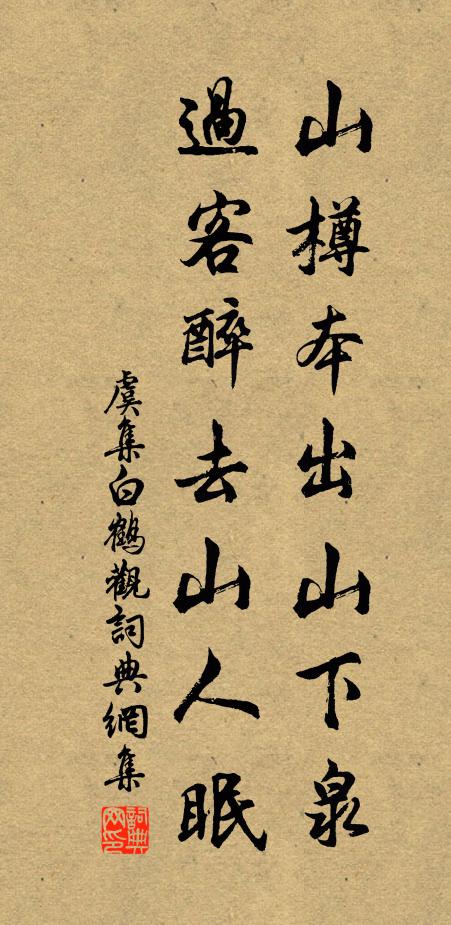 山樽本出山下泉
過客醉去山人眠
虞集白鶴觀詞典網集
詞典網印